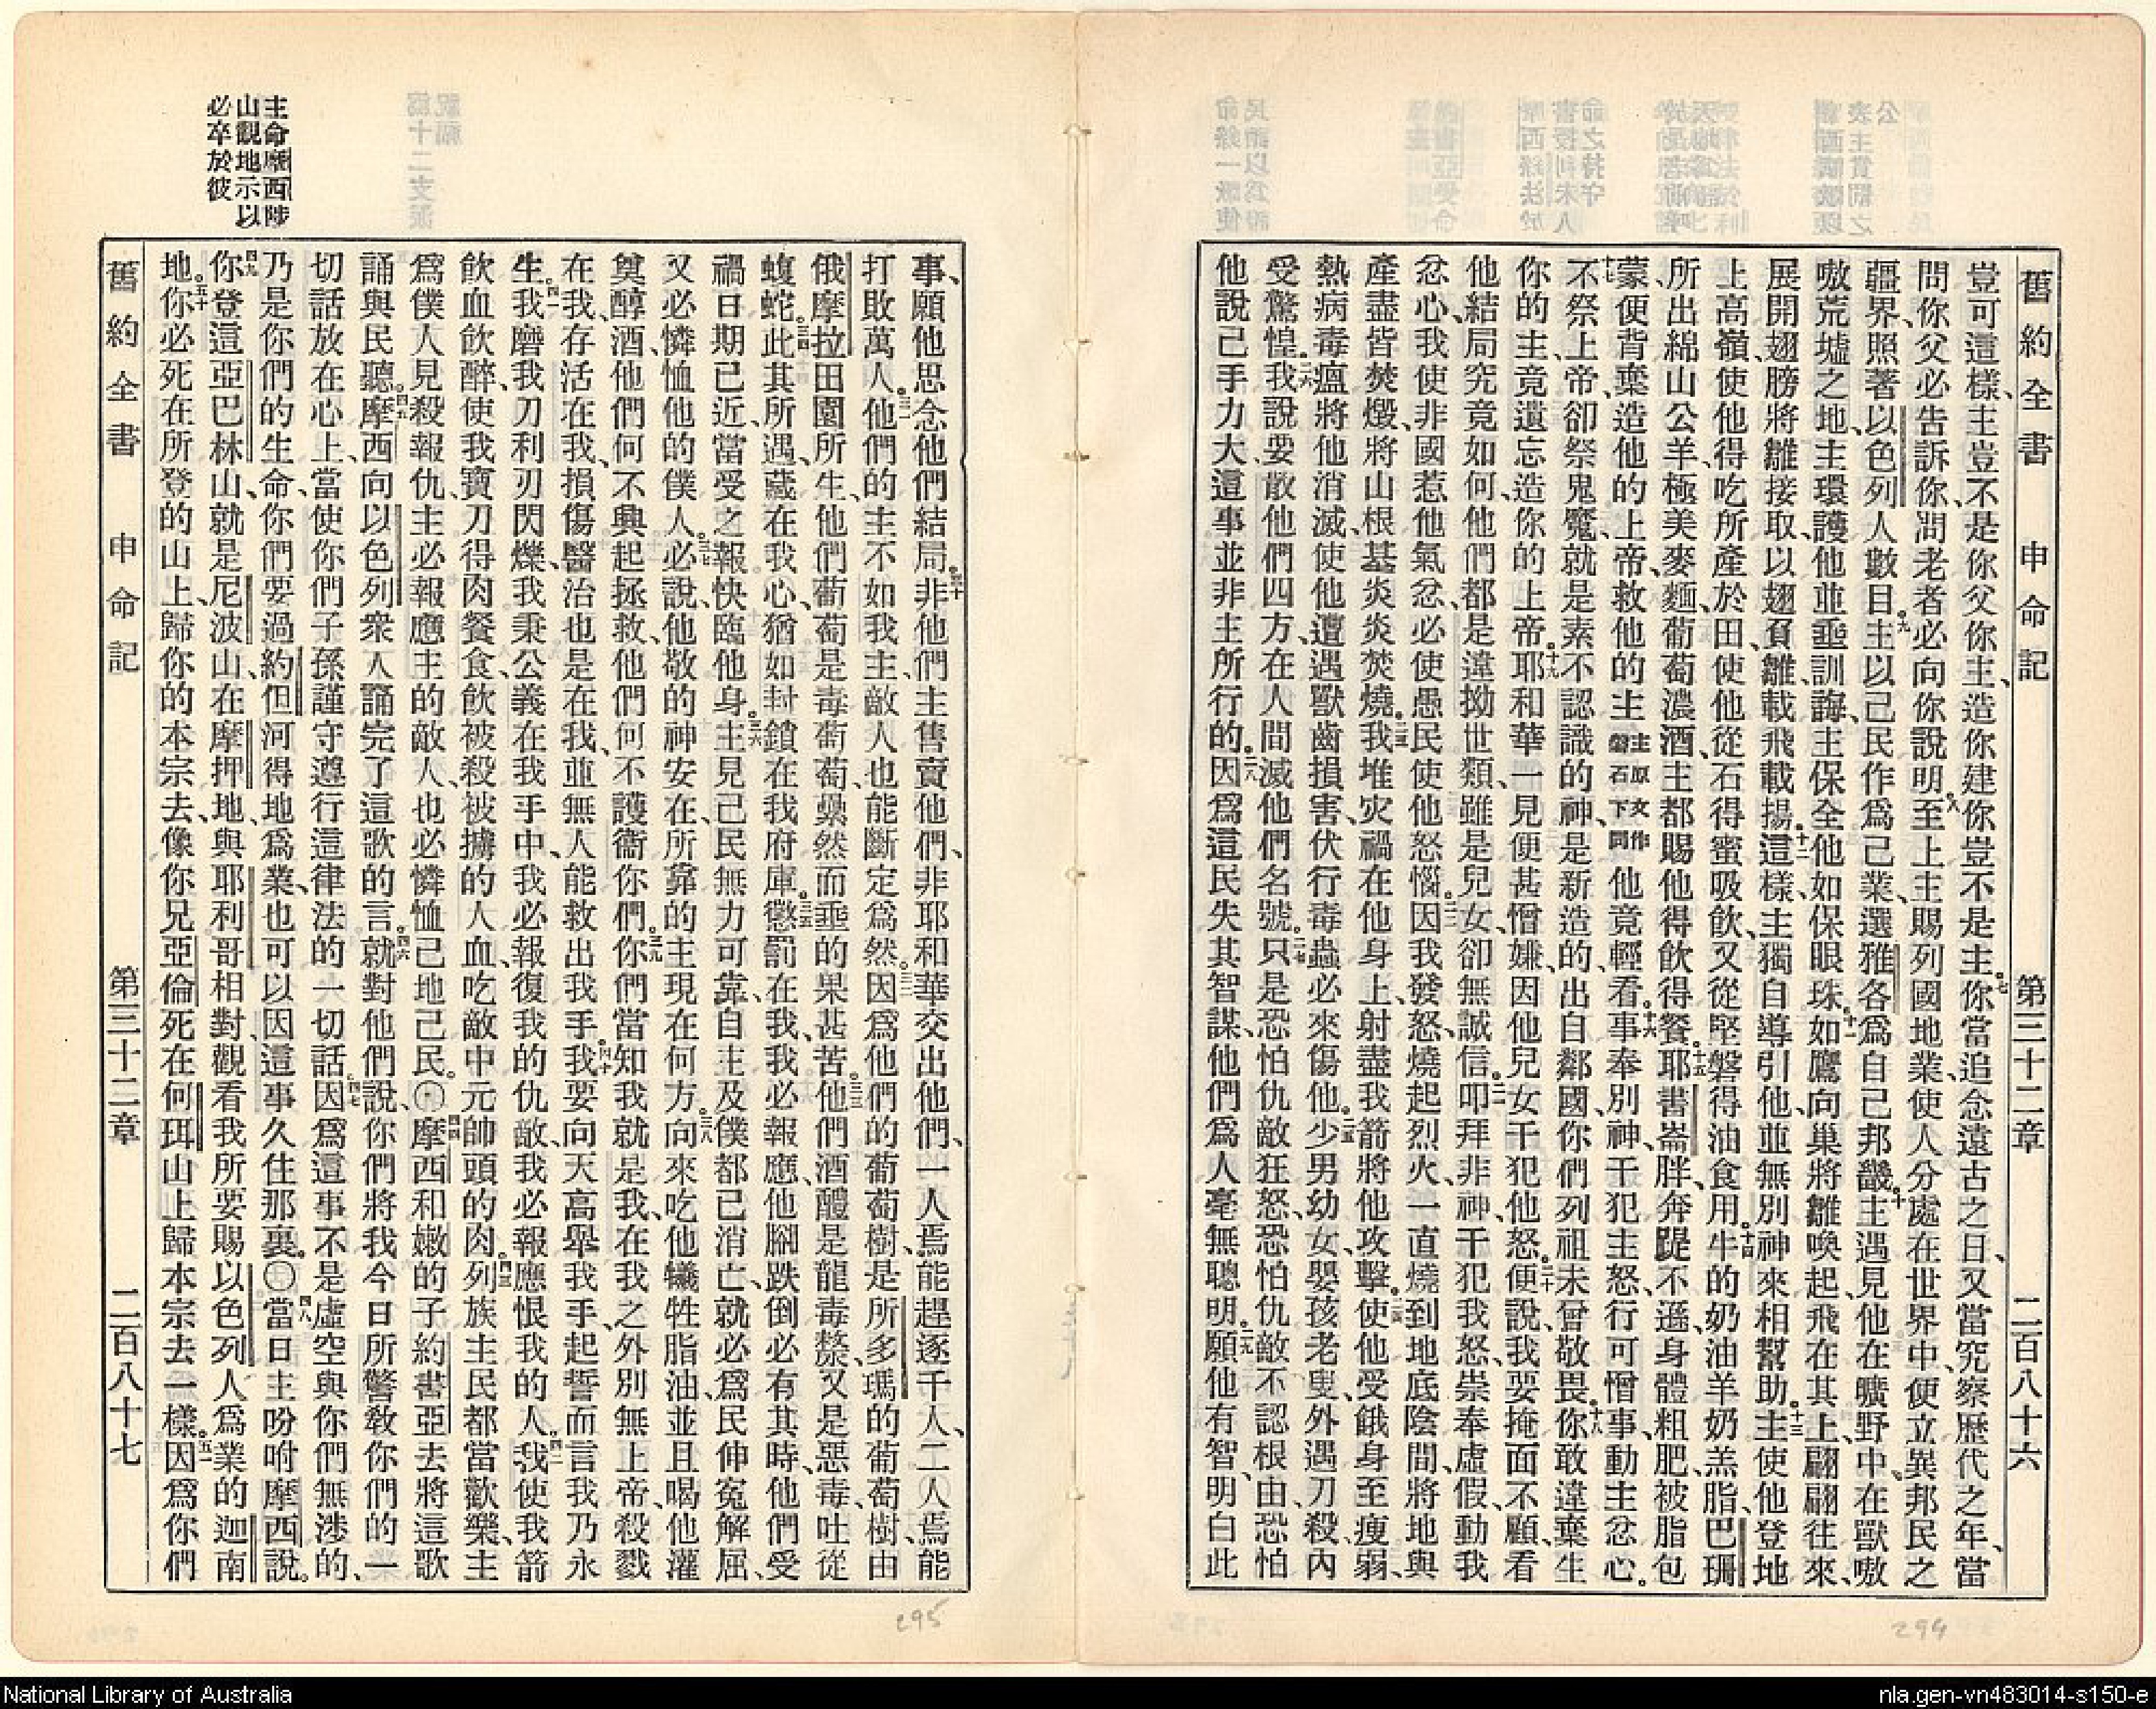 舊約全書 申命記 第三十二章 二百八十六
豈可這樣、主豈不是你父你主、造你建你豈不是主。七你當追念遠古之日、又當究察歷代之年、當
問你父必告訴你、問老者必向你說明。八至上主賜列國地業、使人分處在世界中、便立異邦民之
疆界、照著以色列人數目。九主以己民作爲己業、選雅各爲自己邦畿。十主遇見他在曠野中、在獸嗷
嗷荒墟之地、主環護他並垂訓誨、主保全他如保眼珠。十一如鷹向巢將雛喚起、飛在其上、翩翩往來、
展開翅膀將雛接取、以翅負雛、載飛載揚。十二這樣、主獨自導引他、並無別神來相幫助。十三主使他登地
上高嶺、使他得吃所產於田、使他從石得蜜吸飲、又從堅磐得油食用。十四牛的奶油羊奶羔脂、巴珊
所出綿山公羊、極美麥麵、葡萄濃酒、主都賜他得飲得餐。十五耶書崙胖、奔踶不遜、身體粗肥、被脂包
蒙、便背棄造他的上帝、救他的主主原文作磐石下同他竟輕看。十六事奉別神、干犯主怒、行可憎事、動主忿心。
十七不祭上帝、卻祭鬼魔、就是素不認識的神、是新造的、出自鄰國、你們列祖未曾敬畏。十八你敢違棄生
你的主、竟遺忘造你的上帝。十九耶和華一見便甚憎嫌、因他兒女干犯他怒。二十便說、我要掩面不顧、看
他結局究竟如何、他們都是違拗世類、雖是兒女、卻無誠信。二一叩拜非神、干犯我怒、崇奉虛假、動我
忿心、我使非國惹他氣忿、必使愚民使他怒惱。二二因我發怒、燒起烈火、一直燒到地底陰間、將地與
產盡皆焚燬、將山根基炎炎焚燒。二三我堆灾禍在他身上、射盡我箭將他攻擊。二四使他受餓身至瘦弱、
熱病毒瘟將他消滅、使他遭遇獸齒損害、伏行毒蟲必來傷他。二五少男幼女、嬰孩老叟、外遇刀殺、內
受驚惶。二六我說、要散他們四方、在人間滅他們名號。二七只是恐怕仇敵狂怒、恐怕仇敵不認根由、恐怕
他說己手力大、這事並非主所行的。二八因爲這民失其智謀、他們爲人毫無聰明。二九願他有智、明白此
舊約全書 申命記 第三十二章 二百八十七
主命摩西陟
山觀地示以
必卒於彼
事、願他思念他們結局。三十非他們主售賣他們、非耶和華交出他們、一人焉能趕逐千人、二人焉能
打敗萬人。三一他們的主不如我主、敵人也能斷定爲然。三二因爲他們的葡萄樹、是所多瑪的葡萄樹、由
俄摩拉田園所生、他們葡萄是毒葡萄、纍然而垂的果甚苦。三三他們酒醴是龍毒漦、又是惡毒、吐從
蝮蛇。三四此其所遇、藏在我心、猶如封鎖在我府庫。三五懲罰在我、我必報應、他腳跌倒必有其時、他們受
禍日期已近、當受之報快臨他身。三六主見己民無力可靠、自主及僕都已消亡、就必爲民伸冤解屈、
又必憐恤他的僕人。三七必說、他敬的神安在、所靠的主現在何方。三八向來吃他犧牲脂油、並且喝他灌
奠醇酒、他們何不興起拯救、他們何不護衞你們。三九你們當知我就是我、在我之外別無上帝、殺戮
在我、存活在我、損傷醫治也是在我、並無人能救出我手。四十我要向天高舉我手、起誓而言、我乃永
生。四一我磨我刀利刃閃爍、我秉公義在我手中、我必報復我的仇敵、我必報應恨我的人。四二我使我箭
飲血飲醉、使我寶刀得肉餐食、飲被殺被擄的人血、吃敵中元帥頭的肉。四三列族主民都當歡樂、主
爲僕人見殺報仇、主必報應主的敵人、也必憐恤己地己民。〇四四摩西和嫩的子約書亞去將這歌
誦與民聽。四五摩西向以色列衆人誦完了這歌的言。四六就對他們說、你們將我今日所警教你們的一
切話放在心上、當使你們子孫謹守遵行這律法的一切話。四七因爲這事不是虛空與你們無涉的、
乃是你們的生命、你們要過約但河得地爲業、也可以因這事久住那裏。〇四八當日主吩咐摩西說。
四九你登這亞巴林山、就是尼波山、在摩押地、與耶利哥相對、觀看我所要賜以色列人爲業的迦南
地。五十你必死在所登的山上、歸你的本宗去、像你兄亞倫死在何珥山上、歸本宗去一樣。五一因爲你們
295
294
National Library of Australia
nla.gen-vn483014-s150-e